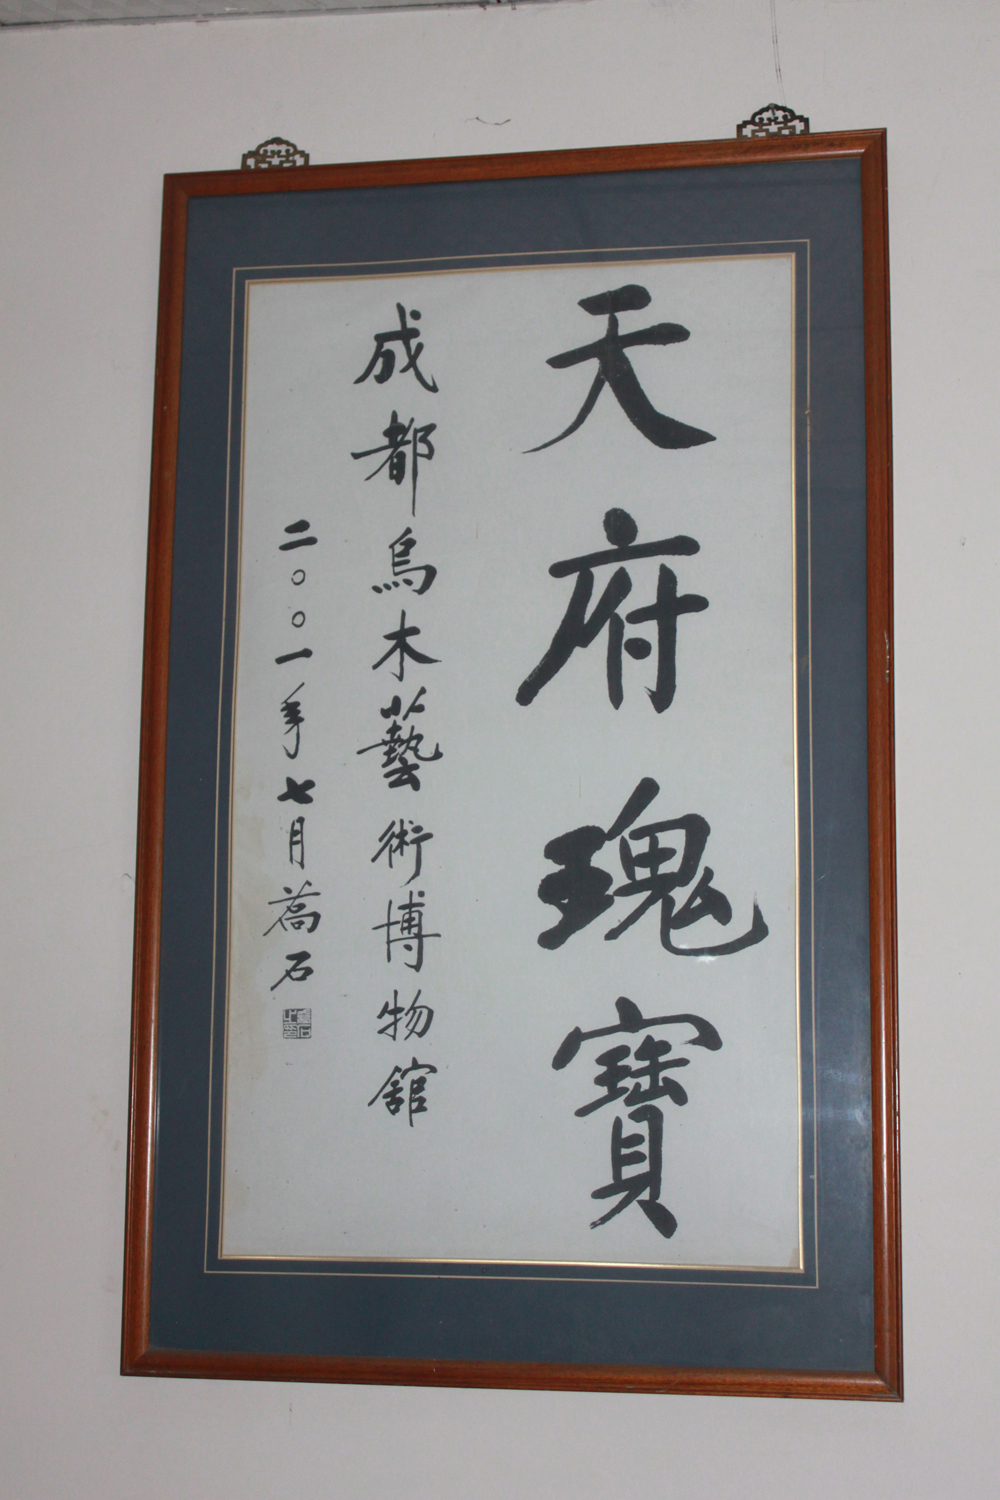 天府瑰寶
成都烏木藝術博物館
二〇〇一年七月蕎石